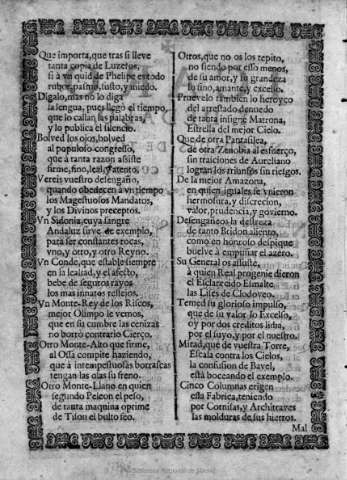 Que importa, que tras si lleve
tanta copia de Luzeros,
si à vn quid de Phelipe es todo
rubor, pasmo, susto, y miedo.
Digalo, mas no lo diga
la lengua, pues llegò el tiempo,
que lo callan las palabras,
y lo publica el silencio.
Bolved los ojos, bolved
al populoso congresso,
que à tanta razon assiste
firme, fino, leal, y atento.
Vereis vuestro desengaño,
quando obedecen à vn tiempo
los Magestuosos Mandatos,
y los Divinos preceptos.
Vn Sidonia, cuya sangre
Andaluz sirve de exemplo,
para ser constantes rocas,
vno, y otro, y otro Reyno.
Vn Conde, que estable siempre
en la lealtad, y el afecto,
bebe de seguros rayos
los mas innatos reflexos.
Vn Monte-Rey de los Riscos,
mejor Olimpo le vemos,
que en su cumbre las cenizas
no borrò contrario Cierço.
Otro Monte-Alto que firme,
al Ossa compite haziendo,
que à intempestuosas borrascas
tengan las olas su freno.
Otro Monte-Llano en quien
segundo Peleon el peso,
de tanta maquina oprime
de Tifon el bulto feo.
Otros, que no os los repito,
no siendo por esso menos,
de su amor, y su grandeza
lo fino, amante, y excelso.
Pruevelo tambien lo heroyco
del arrestado denuedo
de tanta insigne Matrona,
Estrella del mejor Cielo.
Que de otra Pantasilea,
que de otra Zenobia al esfuerço,
sin traiciones de Aureliano
logran los triunfos sin riesgos.
De la mejor Amazona,
en quien iguales se vnieron
hermosura, y discrecion,
valor, prudencia, y govierno.
Desengañeos la destreza
de tanto Bridon aliento,
como en honroso despique
buelve à empuñar el azero.
Su General os assuste,
à quien Real progenie dieron
el Esclarecido Esmalte
las Lises de Clodoveo.
Temed su glorioso impulso,
que de su valor lo Excelso,
oy por dos creditos lidia,
por el suyo, y por el nuestro.
Mirad, que de vuestra Torre,
Escala contra los Cielos,
la confusion de Bavel,
està boceando el exemplo.
Cinco Columnas erigen
essa Fabrica, teniendo
por Cornisas, y Architraves
las molduras de sus hierros.
Mal
Biblioteca Regional de Madrid